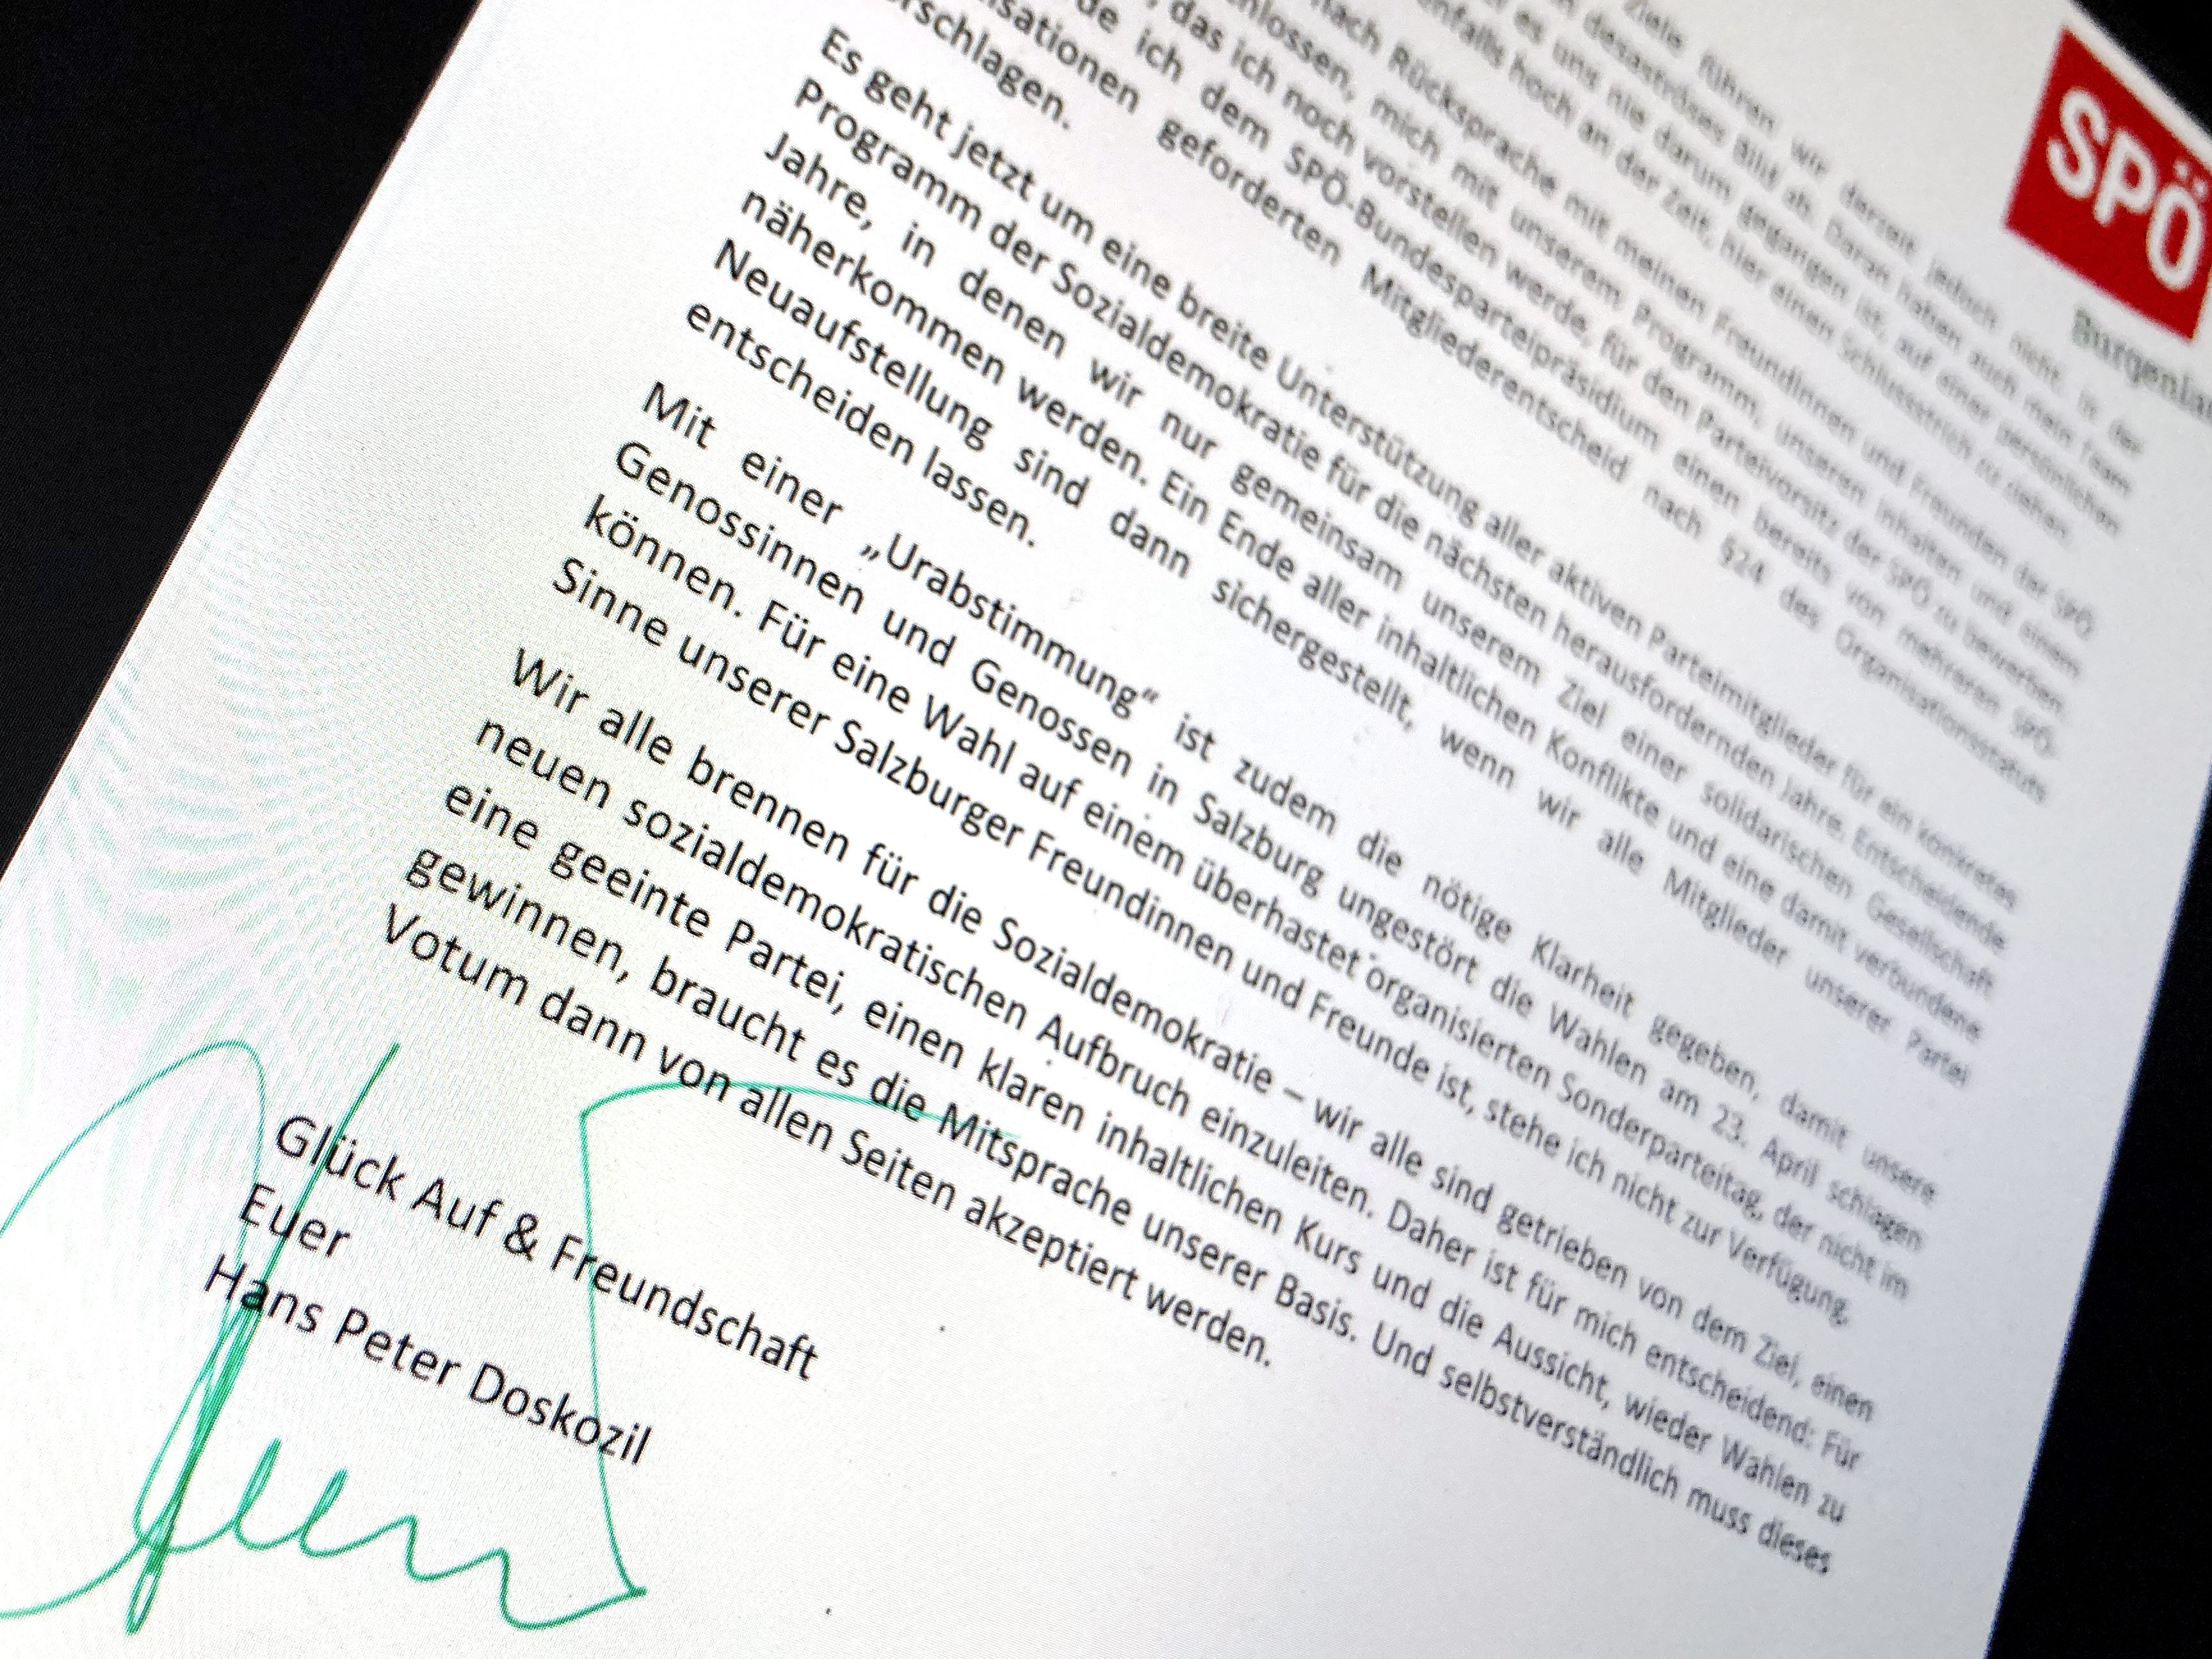 SPÖ
Burgenla
Ziele führen wir derzeit jedoch nicht. In der
desaströses Bild ab. Daran haften auch mein Team
es uns nie darum gegangen ist, auf einer persönlichen
enfalls hoch an der Zeit, hier einen Schlussstrich zu ziehen.
nach Rücksprache mit meinen Freundinnen und Freunden der SPÖ
hlossen, mich mit unserem Programm, unseren Inhalten und einem
, das ich noch vorstellen werde, für den Parteivorsitz der SPÖ zu bewerben.
de ich dem SPÖ-Bundesparteipräsidium einen bereits von mehreren SPÖ-
isationen geforderten Mitgliederentscheid nach §24 des Organisationsstatuts
orschlagen.
Es geht jetzt um eine breite Unterstützung aller aktiven Parteimitglieder für ein konkretes
Programm der Sozialdemokratie für die nächsten herausfordernden Jahre. Entscheidende
Jahre, in denen wir nur gemeinsam unserem Ziel einer solidarischen Gesellschaft
näherkommen werden. Ein Ende aller inhaltlichen Konflikte und eine damit verbundene
Neuaufstellung sind dann sichergestellt, wenn wir alle Mitglieder unserer Partei
entscheiden lassen.
Mit einer „Urabstimmung“ ist zudem die nötige Klarheit gegeben, damit unsere
Genossinnen und Genossen in Salzburg ungestört die Wahlen am 23. April schlagen
können. Für eine Wahl auf einem überhastet organisierten Sonderparteitag, der nicht im
Sinne unserer Salzburger Freundinnen und Freunde ist, stehe ich nicht zur Verfügung.
Wir alle brennen für die Sozialdemokratie – wir alle sind getrieben von dem Ziel, einen
neuen sozialdemokratischen Aufbruch einzuleiten. Daher ist für mich entscheidend: Für
eine geeinte Partei, einen klaren inhaltlichen Kurs und die Aussicht, wieder Wahlen zu
gewinnen, braucht es die Mitsprache unserer Basis. Und selbstverständlich muss dieses
Votum dann von allen Seiten akzeptiert werden.
Glück Auf & Freundschaft
Euer
Hans Peter Doskozil